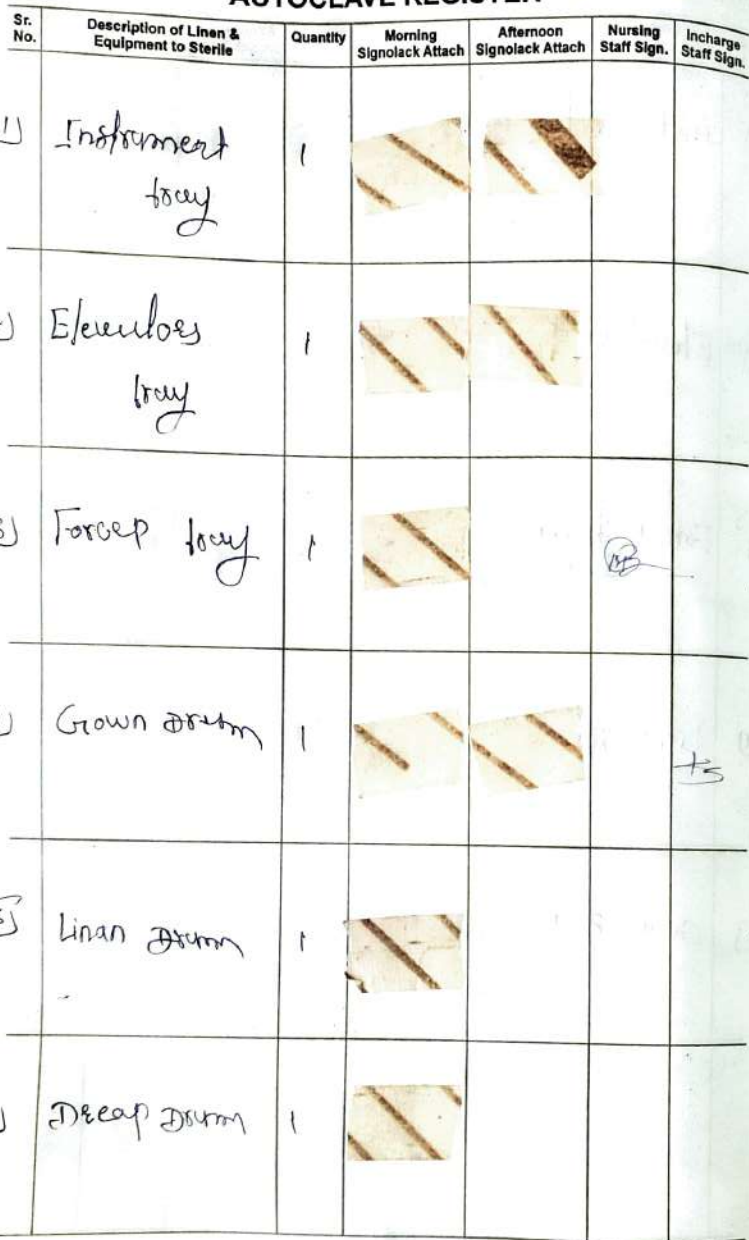 AUTOCLAVE REGISTER
Sr. No.
Description of Linen & Equipment to Sterile
Quantity
Morning Signolack Attach
Afternoon Signolack Attach
Nursing Staff Sign.
Incharge Staff Sign.
1) Instrument tray 1
Elevators tray 1
3) Forcep tray 1
Gown Drum 1
5) Linan Drum 1
Drum 1